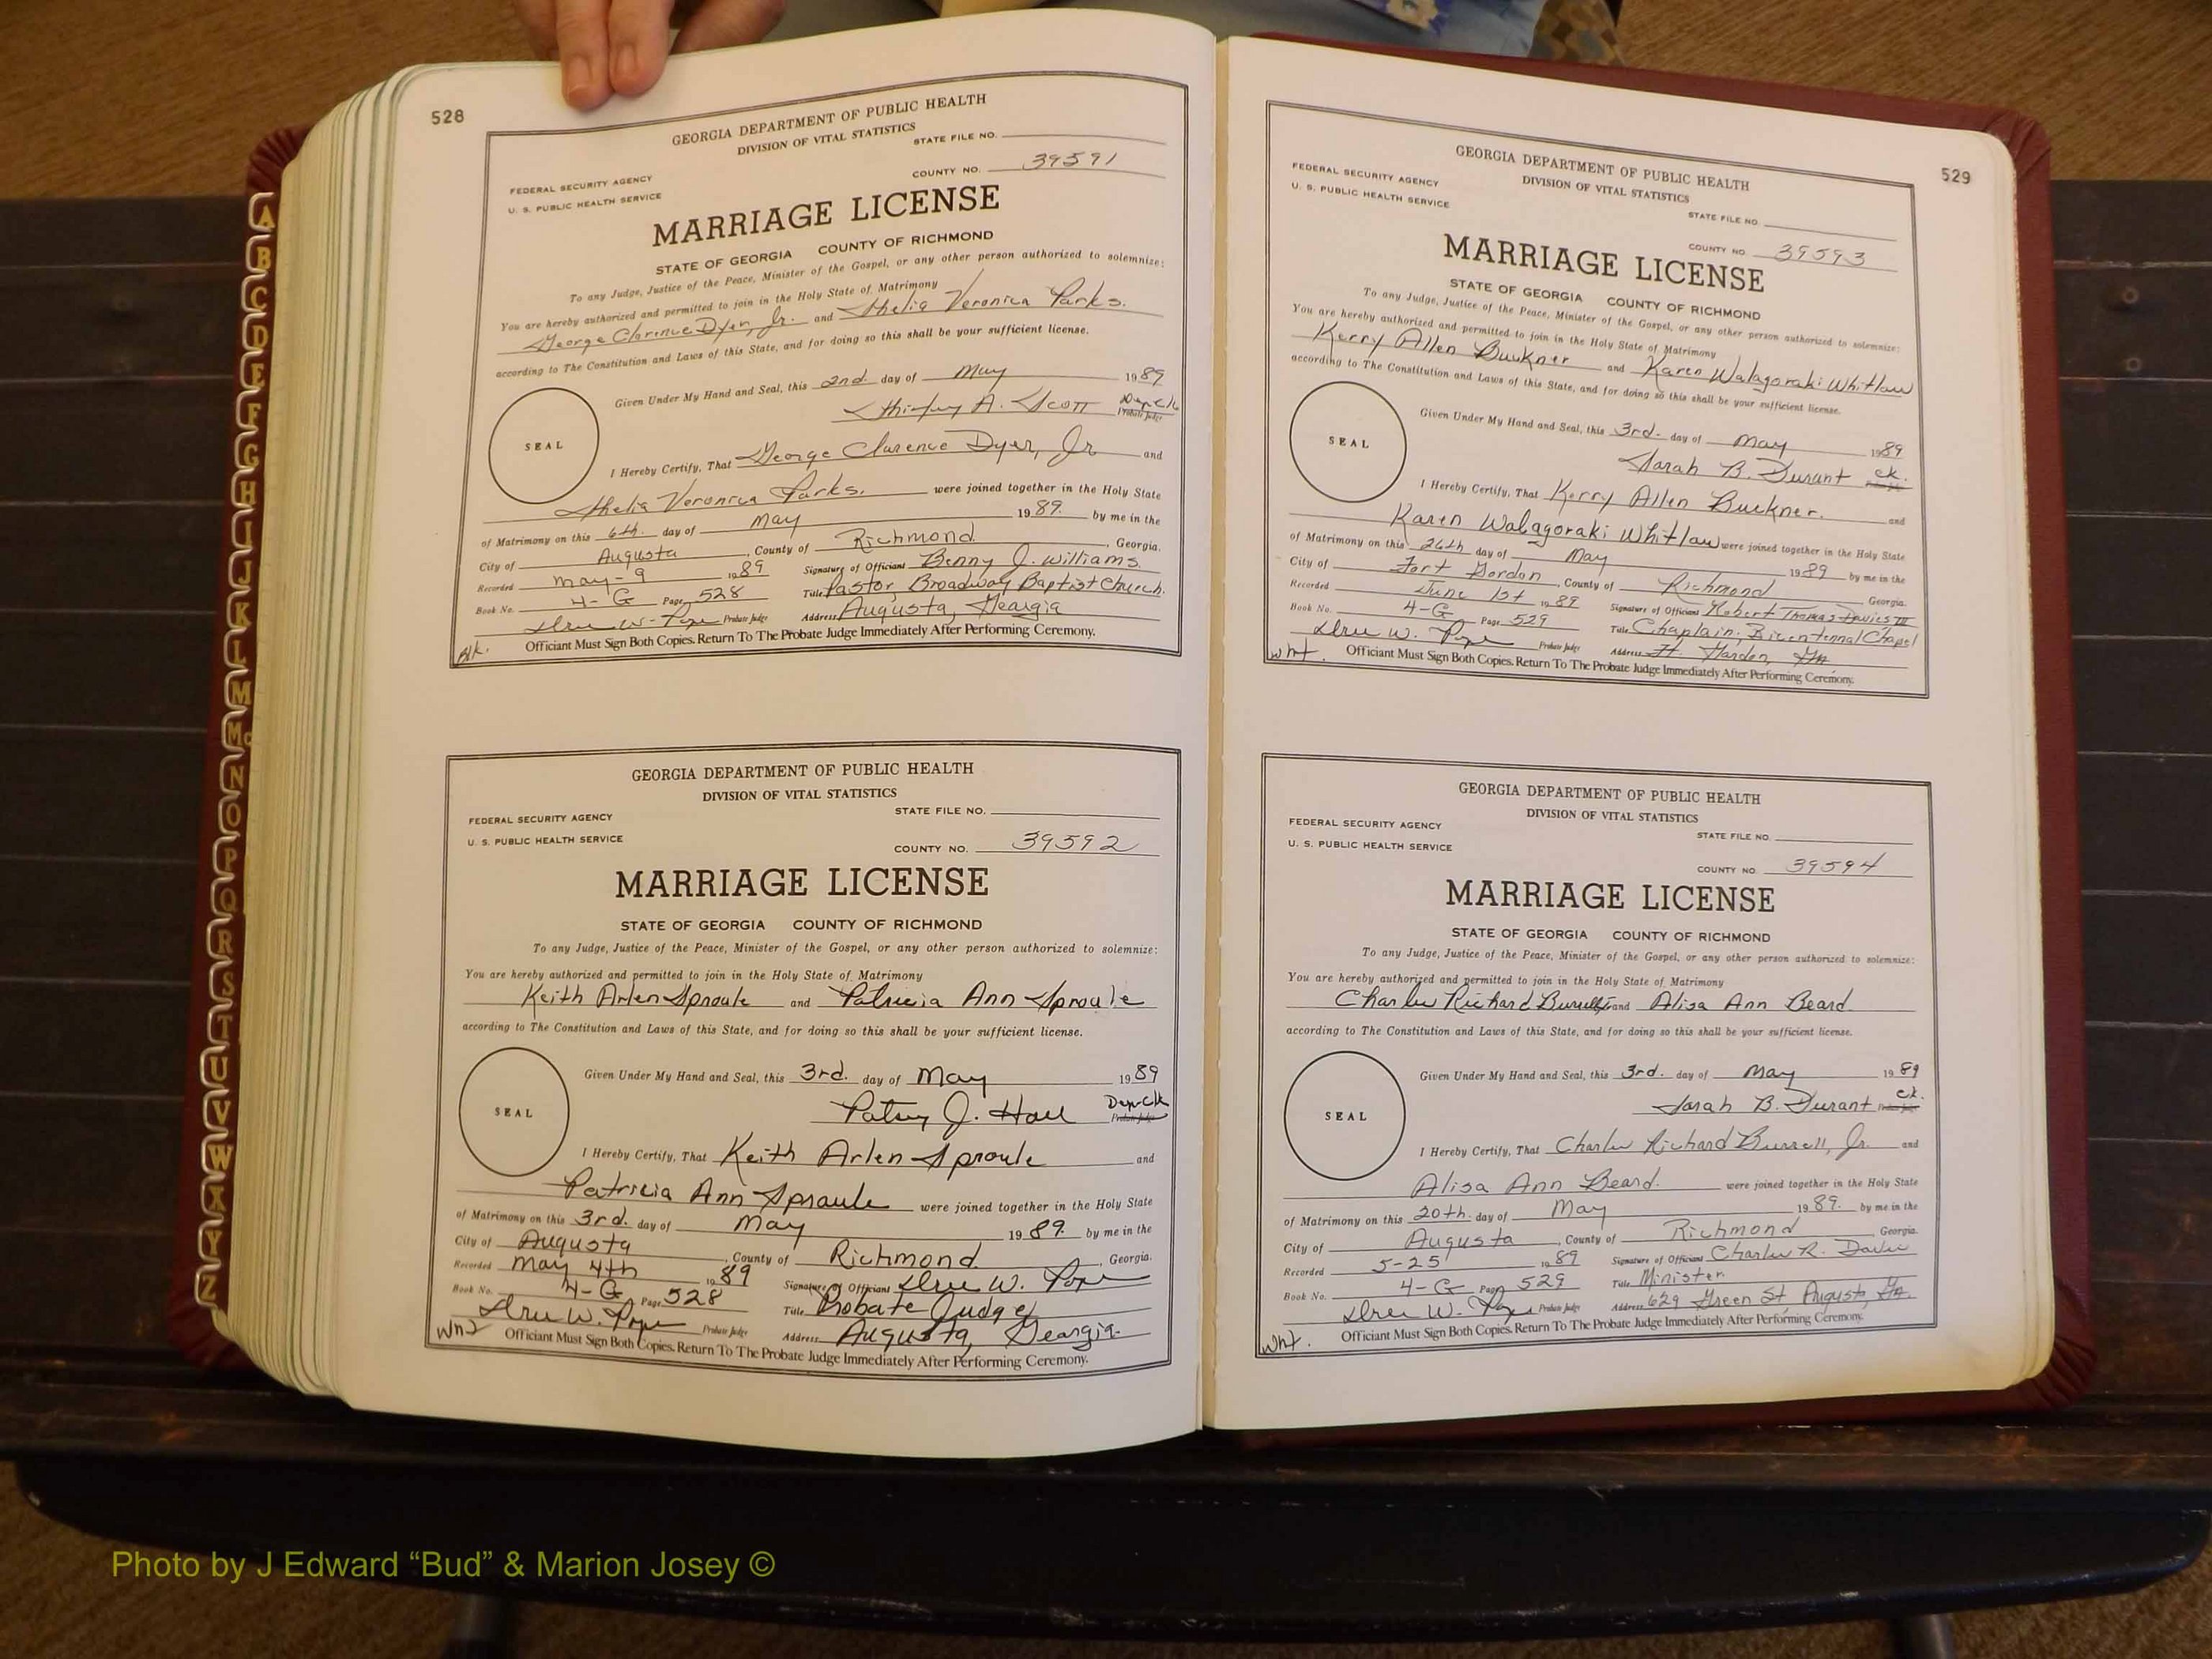 528
GEORGIA DEPARTMENT OF PUBLIC HEALTH
DIVISION OF VITAL STATISTICS
STATE FILE NO.
FEDERAL SECURITY AGENCY
COUNTY NO. 39591
U. S. PUBLIC HEALTH SERVICE
MARRIAGE LICENSE
STATE OF GEORGIA COUNTY OF RICHMOND
To any Judge, Justice of the Peace, Minister of the Gospel, or any other person authorized to solemnize:
You are hereby authorized and permitted to join in the Holy State of Matrimony
George Clarence Dyer, Jr. and Veronica Parks.
according to The Constitution and Laws of this State, and for doing so this shall be your sufficient license.
Given Under My Hand and Seal, this 2nd day of May 1989
Shirley A. Scott Dep Clk
Probate Judge
SEAL
I Hereby Certify, That George Clarence Dyer, Jr and
Veronica Parks. were joined together in the Holy State
of Matrimony on this 6th. day of May 1989. by me in the
City of Augusta, County of Richmond, Georgia.
Recorded May-9 1989 Signature of Officiant Benny J. Williams.
Book No. 4-G Page 528 Title Pastor, Broadway Baptist Church.
W. Pope Probate Judge Address Augusta, Georgia
Blk. Officiant Must Sign Both Copies. Return To The Probate Judge Immediately After Performing Ceremony.
GEORGIA DEPARTMENT OF PUBLIC HEALTH
DIVISION OF VITAL STATISTICS
FEDERAL SECURITY AGENCY
STATE FILE NO.
U. S. PUBLIC HEALTH SERVICE
COUNTY NO. 39592
MARRIAGE LICENSE
STATE OF GEORGIA COUNTY OF RICHMOND
To any Judge, Justice of the Peace, Minister of the Gospel, or any other person authorized to solemnize:
You are hereby authorized and permitted to join in the Holy State of Matrimony
Keith Arlen Sproule and Patricia Ann Sproule
according to The Constitution and Laws of this State, and for doing so this shall be your sufficient license.
Given Under My Hand and Seal, this 3rd. day of May 1989
Patsy J. Hall Dep-Clk
Probate Judge
SEAL
I Hereby Certify, That Keith Arlen Sproule and
Patricia Ann Sproule were joined together in the Holy State
of Matrimony on this 3rd. day of May 1989. by me in the
City of Augusta, County of Richmond, Georgia.
Recorded May 4th 1989 Signature of Officiant W. Pope
Book No. 4-G Page 528 Title Probate Judge
W. Pope Probate Judge Address Augusta, Georgia.
Wht Officiant Must Sign Both Copies. Return To The Probate Judge Immediately After Performing Ceremony.
529
GEORGIA DEPARTMENT OF PUBLIC HEALTH
DIVISION OF VITAL STATISTICS
FEDERAL SECURITY AGENCY
STATE FILE NO
U. S. PUBLIC HEALTH SERVICE
COUNTY NO 39593
MARRIAGE LICENSE
STATE OF GEORGIA COUNTY OF RICHMOND
To any Judge, Justice of the Peace, Minister of the Gospel, or any other person authorized to solemnize:
You are hereby authorized and permitted to join in the Holy State of Matrimony
Kerry Allen Buckner and Karen Walagoraki Whitlaw
according to The Constitution and Laws of this State, and for doing so this shall be your sufficient license.
Given Under My Hand and Seal, this 3rd. day of May 1989
Sarah B. Durant Ck.
SEAL
I Hereby Certify, That Kerry Allen Buckner. and
Karen Walagoraki Whitlaw were joined together in the Holy State
of Matrimony on this 26th day of May 1989 by me in the
City of Fort Gordon, County of Richmond Georgia.
Recorded June 1st 1989 Signature of Officiant Robert Thomas Davies III
Book No. 4-G Page 529 Title Chaplain, Bicentennal Chapel
W. Pope Probate Judge Address Ft. Gordon, Ga.
Wht. Officiant Must Sign Both Copies. Return To The Probate Judge Immediately After Performing Ceremony.
GEORGIA DEPARTMENT OF PUBLIC HEALTH
DIVISION OF VITAL STATISTICS
FEDERAL SECURITY AGENCY
STATE FILE NO.
U. S. PUBLIC HEALTH SERVICE
COUNTY NO. 39594
MARRIAGE LICENSE
STATE OF GEORGIA COUNTY OF RICHMOND
To any Judge, Justice of the Peace, Minister of the Gospel, or any other person authorized to solemnize:
You are hereby authorized and permitted to join in the Holy State of Matrimony
Charles Richard and Alisa Ann Beard.
according to The Constitution and Laws of this State, and for doing so this shall be your sufficient license.
Given Under My Hand and Seal, this 3rd. day of May 1989
Sarah B. Durant Ck.
SEAL
I Hereby Certify, That Charles Richard Burrell, Jr. and
Alisa Ann Beard. were joined together in the Holy State
of Matrimony on this 20th. day of May 1989. by me in the
City of Augusta, County of Richmond Georgia.
Recorded 5-25 1989 Signature of Officiant Charles R. Davis
Book No. 4-G Page 529 Title Minister.
W. Pope Probate Judge Address 629 Green St Augusta, Ga.
Wht. Officiant Must Sign Both Copies. Return To The Probate Judge Immediately After Performing Ceremony.
A
B
C
D
E
F
G
H
I
J
K
L
M
Mc
N
O
P
Q
R
S
T
U
V
W
X
Y
Z
Photo by J Edward “Bud” & Marion Josey ©